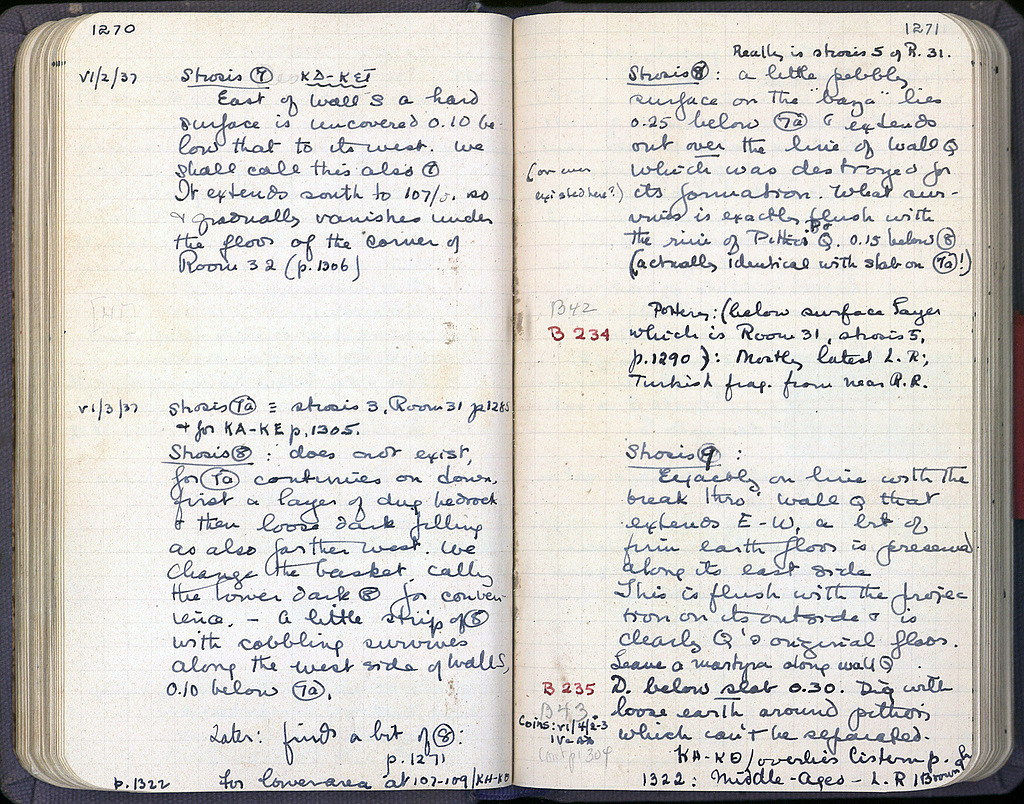 1270
VI/2/37
Strosis 7 KΔ-KET
East of wall S a hard
surface is uncovered 0.10 be-
low that to its west. We
shall call this also 7
It extends south to 107/ . so
& gradually vanishes under
the floor of the corner of
Room 32 (p.1306)
VI/3/37
Strosis 7a ≡ strosis 3, Room 31 p.1285
& for KA-KE p.1305.
Strosis 8 : does not exist,
for 7a continues on down,
first a layer of dug bedrock
& then loose dark filling
as also farther west. We
change the basket, calling
the lower dark 8 for conven-
ience. – A little strip of 8
with cobbling survives
along the west side of wall S,
0.10 below 7a.
Later: finds a bit of 8:
p.1271
p.1322 for lower area at 107-109/KH-KΘ
1271
Really is strosis 5 of R. 31.
Strosis 8: a little pebbly
surface on the "baza" lies
0.25 below 7a & extends
out over the line of wall Q
which was destroyed for
(or ever
existed here?)
its formation. What sur-
vives is exactly flush with
the rim of Pithos Q. 0.15 below 8
(actually identical with slab on 7a!)
B42
B 234
Pottery: (below surface layer
which is Room 31, strosis 5,
p.1290): Mostly latest L.R;
Turkish frag. from near R.R.
Strosis 9 :
Exactly on line with the
break thro' wall Q that
extends E-W, a bit of
firm earth floor is preserved
along its east side
This is flush with the projec
tion on its outside & is
clearly Q's original floor.
Leave a martyra along wall Q
B 235
B43
D. below slab 0.30. Dig with
loose earth around pithos
which can't be separated.
Coins: VI/4/2-3
KA-KΘ/overlies Cistern p.
1322: Middle-Ages – L.R